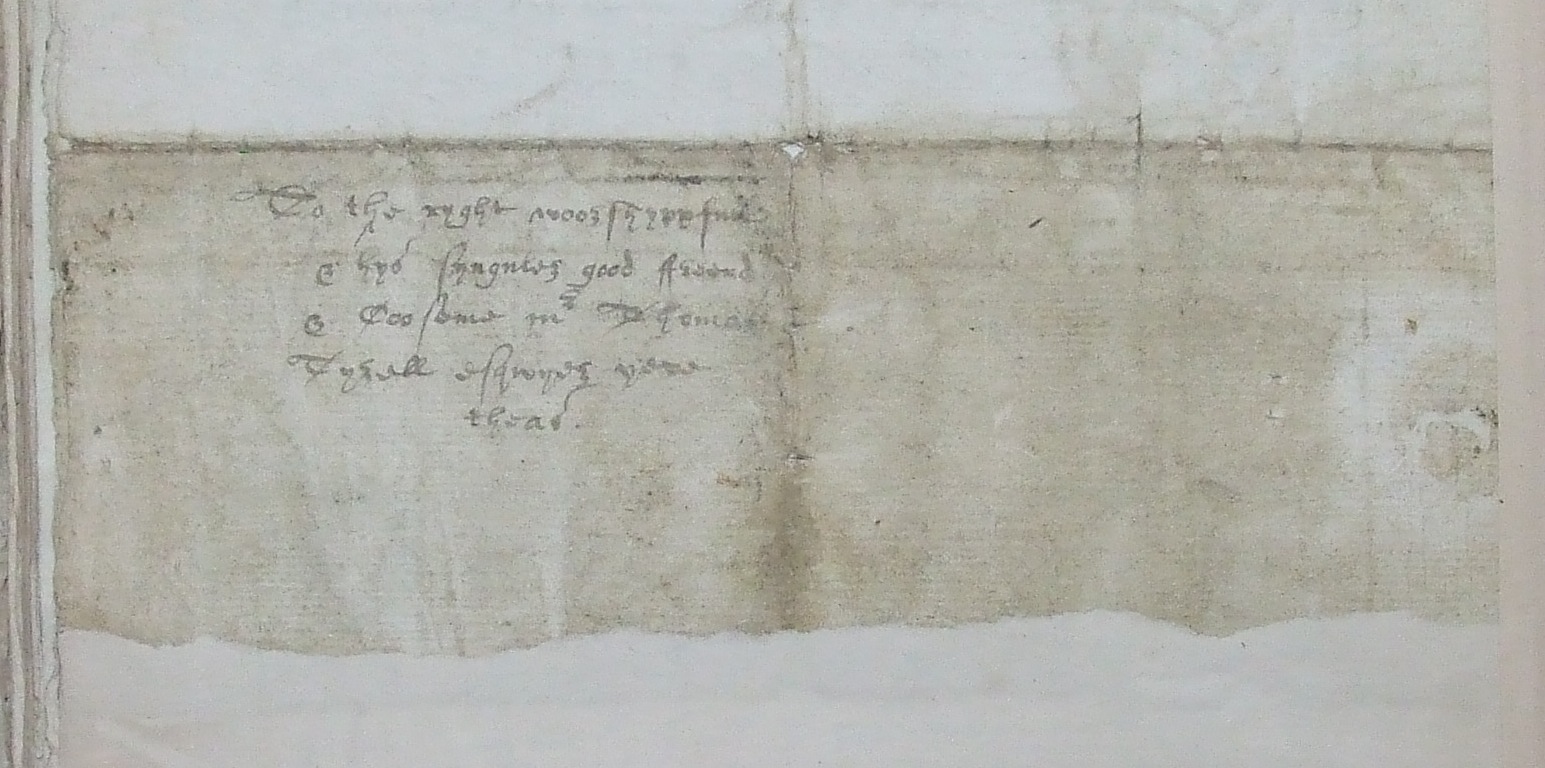 To the ryght woorshyppfull
& hys synguler good ffreend
& Coosyne mr Thomas
Tyrell esqwyer yeve
theas.